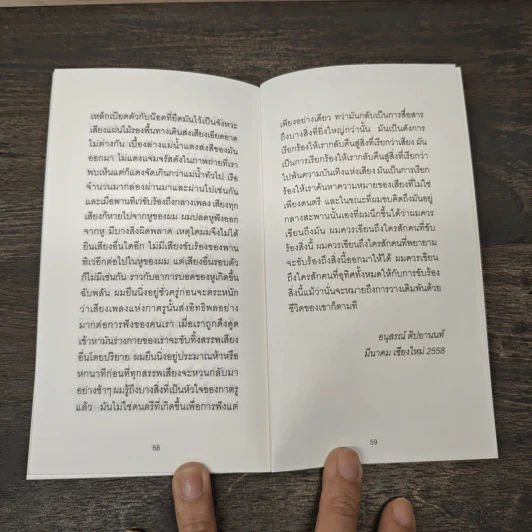 เหล็กเบียดตัวกับน๊อตที่ยึดมันไว้เป็นจังหวะ
เสียงแผ่นไม้รองพื้นทางเดินส่งเสียงเอียดอาด
ไม่ต่างกัน เบื้องล่างแม่น้ำแดงส่งสีของมัน
ออกมา ไม่แดงแจ่มจรัสดังในภาพถ่ายที่เรา
พบเห็นแต่ก็แดงจัดเกินกว่าแม่น้ำทั่วไป เรือ
จำนวนมากล่องผ่านมาและผ่านไปเช่นกัน
และเมื่อพานทิเว่ขับร้องถึงกลางเพลง เสียงทุก
เสียงก็หายไปจากหูของผม ผมปลดหูฟังออก
จากหู มีบางสิ่งผิดพลาด เหตุใดผมจึงไม่ได้
ยินเสียงอื่นใดอีก ไม่มีเสียงขับร้องของพาน
ทิเว่อีกต่อไปในหูของผม แต่เสียงอื่นรอบตัว
ก็ไม่มีเช่นกัน ราวกับอาการบอดของหูเกิดขึ้น
ฉับพลัน ผมยืนนิ่งอยู่ชั่วครู่ก่อนจะตระหนัก
ว่าเสียงเพลงแห่งกาตรูนั้นส่งอิทธิพลอย่าง
มากต่อการฟังของคนเรา เมื่อเราถูกดึงดูด
เข้าหามันร่างกายของเราจะขับทิ้งสรรพเสียง
อื่นโดยปริยาย ผมยืนนิ่งอยู่ประมาณห้าหรือ
หกนาทีก่อนที่ทุกสรรพเสียงจะหวนกลับมา
อย่างช้าๆ ผมรู้ถึงบางสิ่งที่เป็นหัวใจของกาตรู
แล้ว มันไม่ใช่ดนตรีที่เกิดขึ้นเพื่อการฟังแต่
58
เพียงอย่างเดียว ทว่ามันกลับเป็นการสื่อสาร
ถึงบางสิ่งที่ยิ่งใหญ่กว่านั้น มันเป็นดังการ
เรียกร้องให้เรากลับคืนสู่สิ่งที่เรียกว่าเสียง มัน
เป็นการเรียกร้องให้เรากลับคืนสู่สิ่งที่เรียกว่า
ไปพ้นความบันเทิงแห่งเสียง มันเป็นการเรียก
ร้องให้เราค้นหาความหมายของเสียงที่ไม่ใช่
เพียงดนตรี และในขณะที่ผมขบคิดถึงมันอยู่
กลางสะพานนั้นเองที่ผมนึกขึ้นได้ว่าผมควร
เขียนถึงมัน ผมควรเขียนถึงใครสักคนที่ขับ
ร้องสิ่งนี้ ผมควรเขียนถึงใครสักคนที่พยายาม
จะขับร้องสิ่งนี้ออกมาให้ได้ ผมควรเขียน
ถึงใครสักคนที่อุทิศทั้งหมดให้กับการขับร้อง
สิ่งนี้แม้ว่านั่นจะหมายถึงการวางเดิมพันด้วย
ชีวิตของเขาก็ตามที
อนุสรณ์ ติปยานนท์
มีนาคม เชียงใหม่ 2558
59